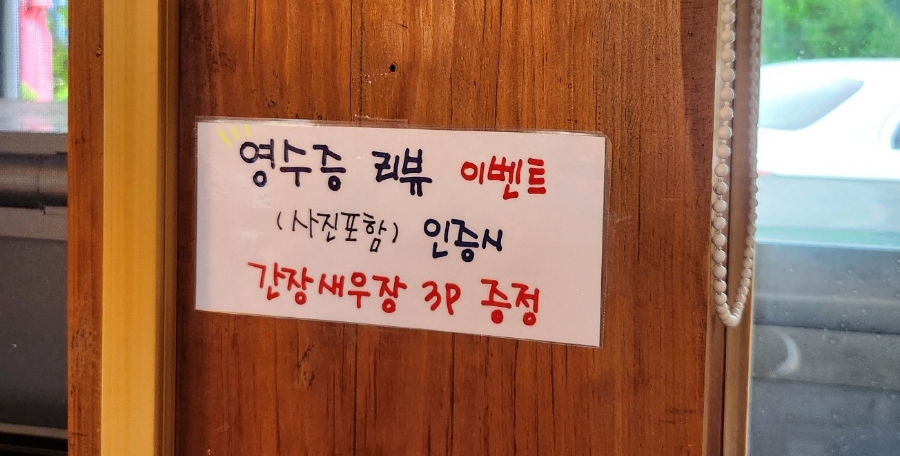 영수증 리뷰 이벤트
(사진포함) 인증시
간장새우장 3P 증정